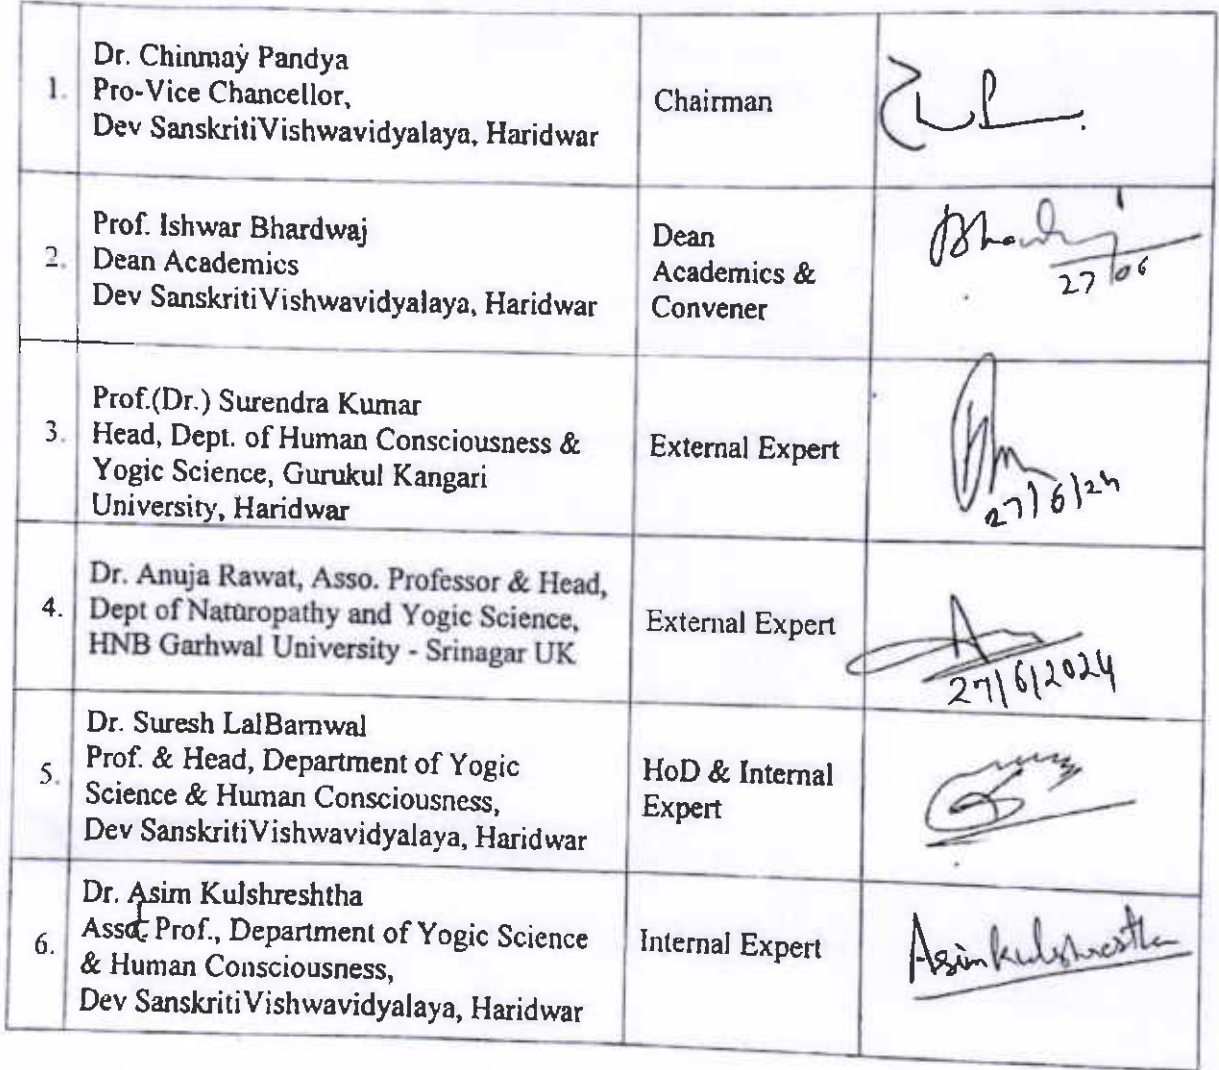 1.
Dr. Chinmay Pandya
Pro-Vice Chancellor,
Dev SanskritiVishwavidyalaya, Haridwar
Chairman
2.
Prof. Ishwar Bhardwaj
Dean Academics
Dev SanskritiVishwavidyalaya, Haridwar
Dean
Academics &
Convener
27/06
3.
Prof.(Dr.) Surendra Kumar
Head, Dept. of Human Consciousness &
Yogic Science, Gurukul Kangari
University, Haridwar
External Expert
27/6/24
4.
Dr. Anuja Rawat, Asso. Professor & Head,
Dept of Naturopathy and Yogic Science,
HNB Garhwal University - Srinagar UK
External Expert
27/6/2024
5.
Dr. Suresh LalBarnwal
Prof. & Head, Department of Yogic
Science & Human Consciousness,
Dev SanskritiVishwavidyalaya, Haridwar
HoD & Internal
Expert
6.
Dr. Asim Kulshreshtha
Asst Prof., Department of Yogic Science
& Human Consciousness,
Dev SanskritiVishwavidyalaya, Haridwar
Internal Expert
Asim Kulshrestha